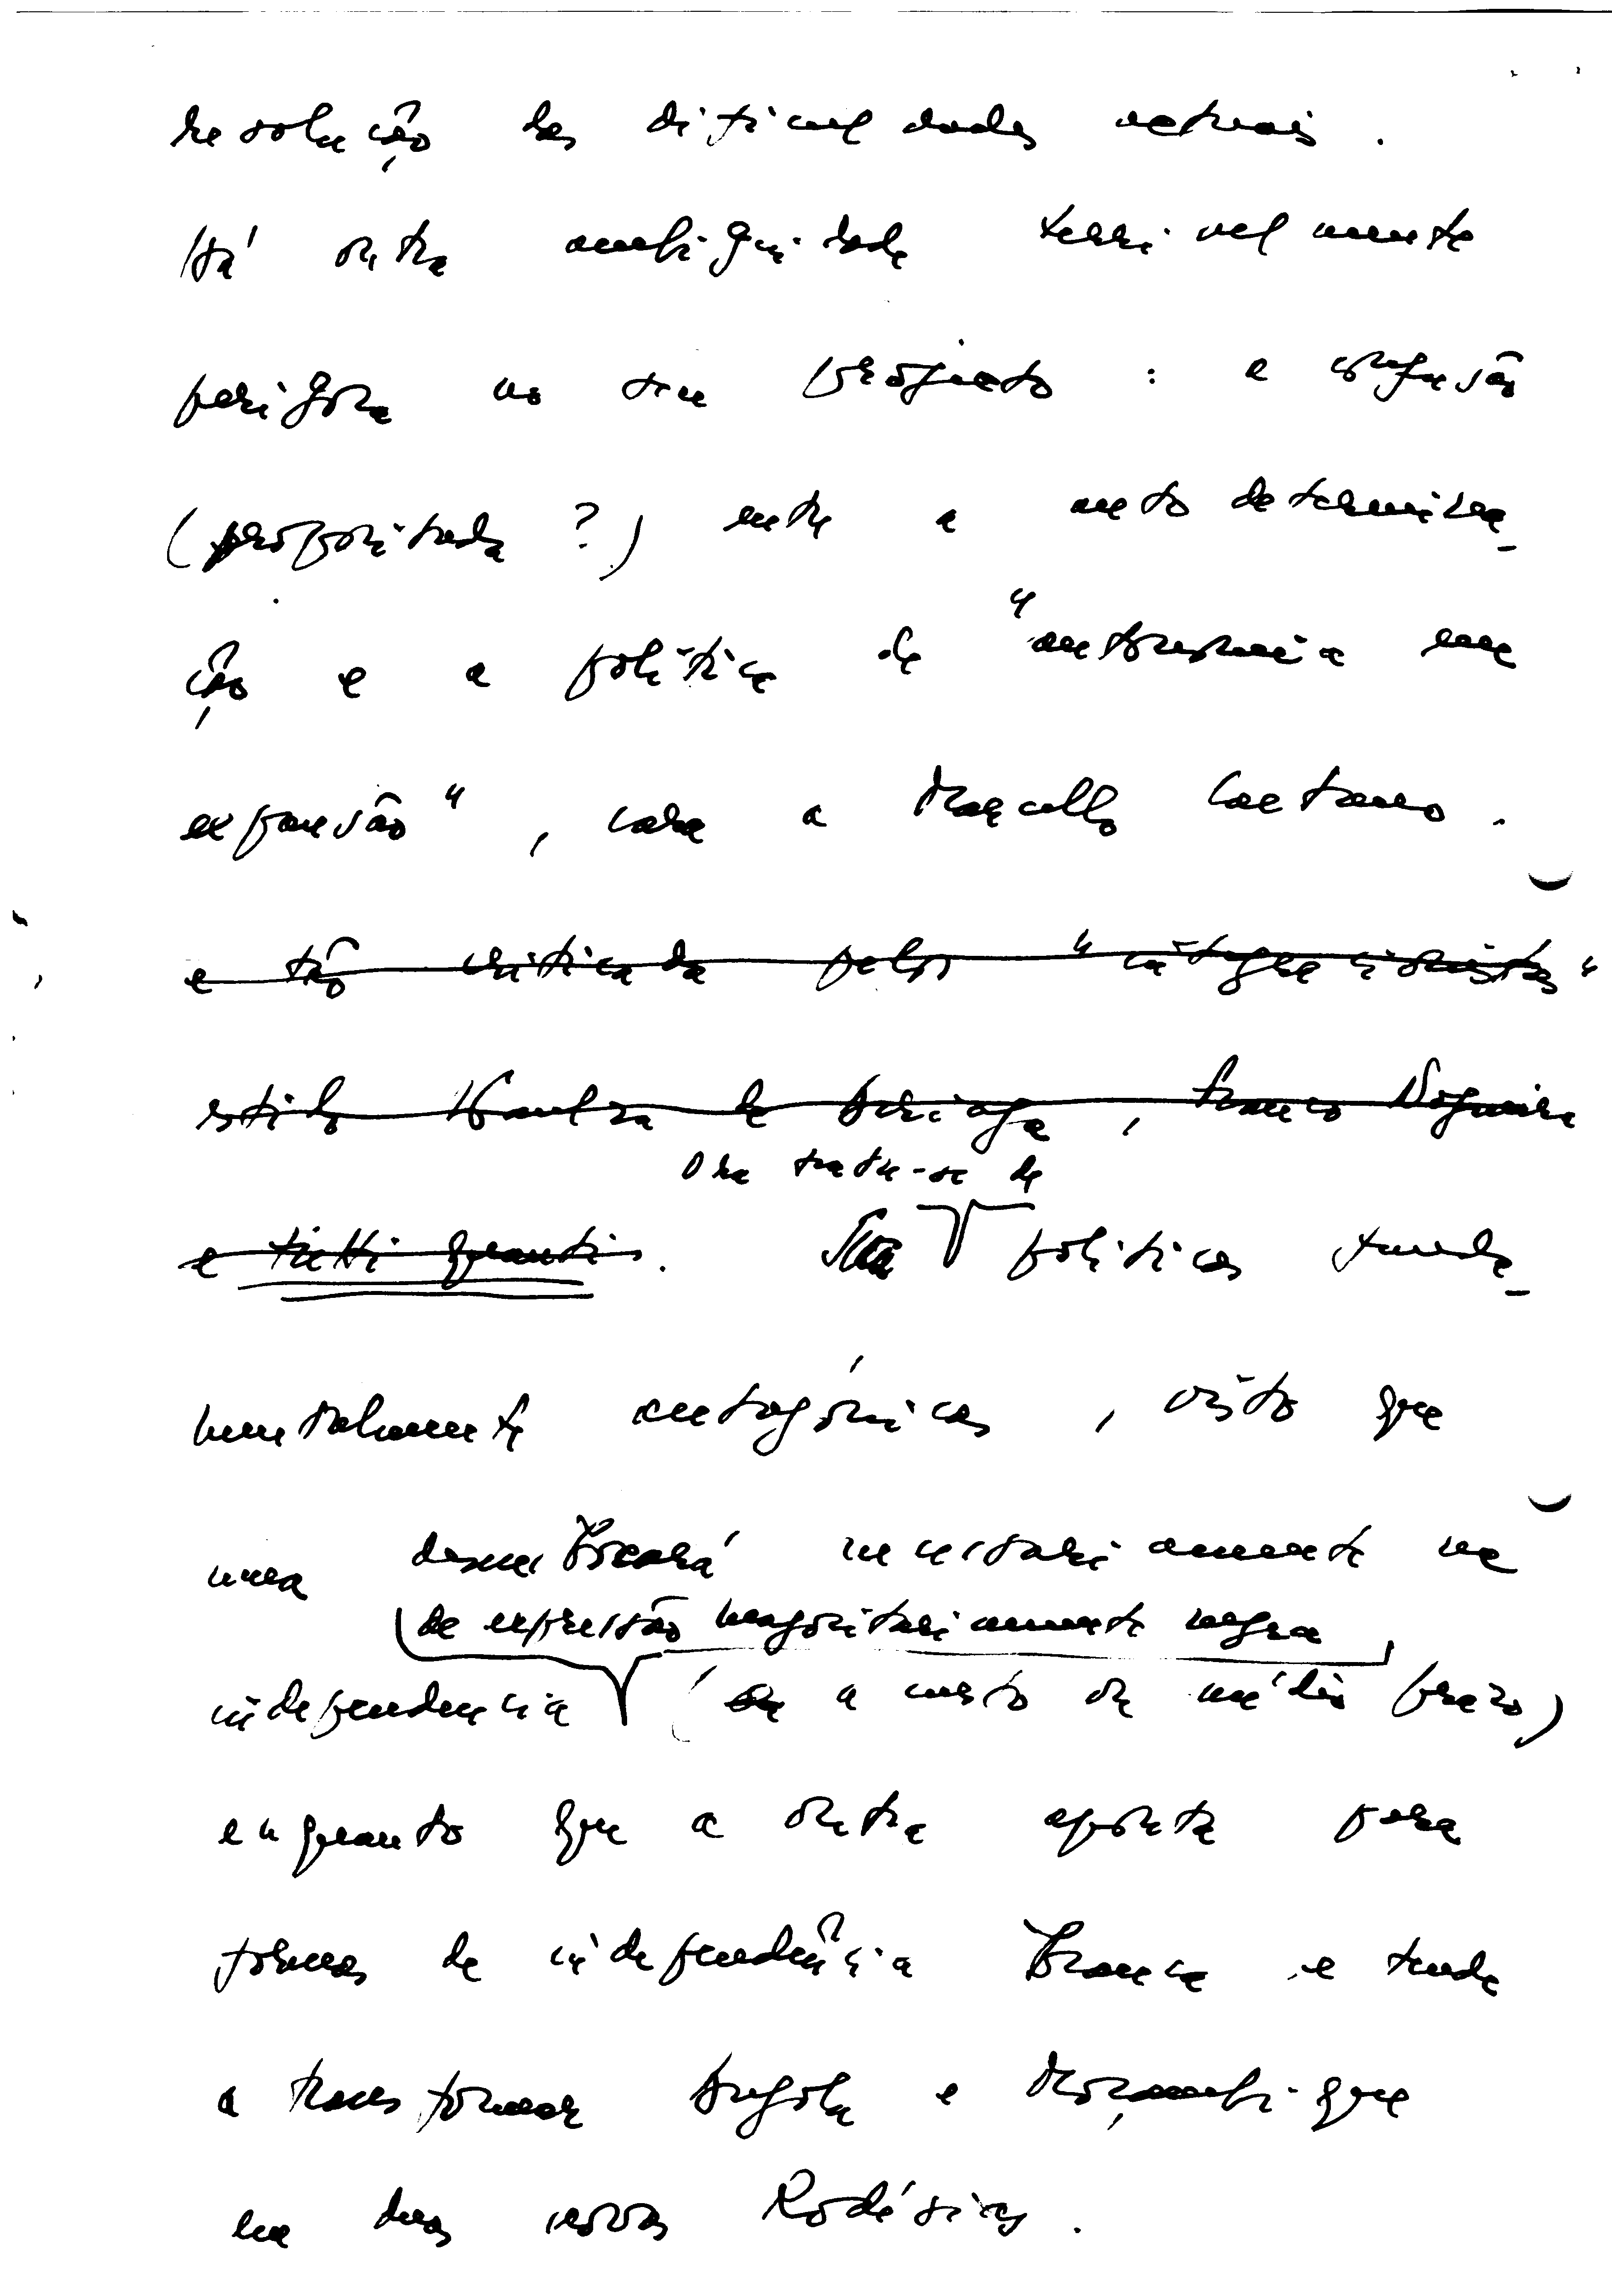 resolução das dificuldades actuais.
Há outra ambiguidade terrivelmente
perigosa no seu projecto : a confusão
(propositada ?) entre a auto determina-
ção e a política de "autonomia em
expansão", cara a Marcello Caetano.
e tão criticada pelos "integracionistas"
estilo Kaulza de Arriaga, Franco Nogueira
e tutti quanti.
Ora trata-se de
políticas funda-
mentalmente antagónicas, visto que
uma desembocará necessariamente na
de expressão majoritariamente negra
independencia (a curto ou médio prazo)
enquanto que a outra aponta para
formas de independência branca e tende
a transformar Angola e Moçambique
em duas novas Rodésias.